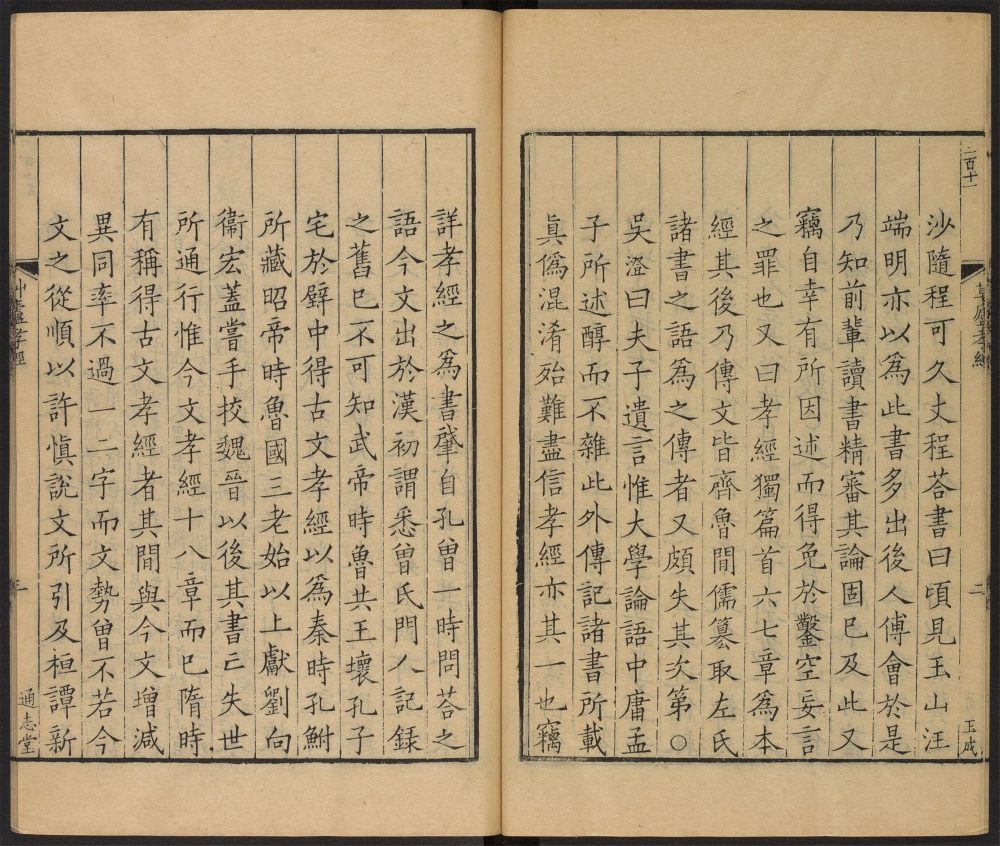 二百十一
草廬孝經
二
玉成
沙隨程可久丈程荅書曰頃見玉山汪
端明亦以爲此書多出後人傅會於是
乃知前輩讀書精審其論固已及此又
竊自幸有所因述而得免於鑿空妄言
之罪也又曰孝經獨篇首六七章爲本
經其後乃傳文皆齊魯間儒纂取左氏
諸書之語爲之傳者又頗失其次第〇
吳澄曰夫子遺言惟大學論語中庸孟
子所述醇而不雜此外傳記諸書所載
眞僞混淆殆難盡信孝經亦其一也竊
詳孝經之爲書肇自孔曾一時問荅之
語今文出於漢初謂悉曾氏門人記録
之舊已不可知武帝時魯共王壞孔子
宅於壁中得古文孝經以爲秦時孔鮒
所藏昭帝時魯國三老始以上獻劉向
衞宏蓋嘗手挍魏晉以後其書亡失世
所通行惟今文孝經十八章而已隋時
有稱得古文孝經者其間與今文增減
異同率不過一二字而文勢曾不若今
文之從順以許愼說文所引及桓譚新
通志堂